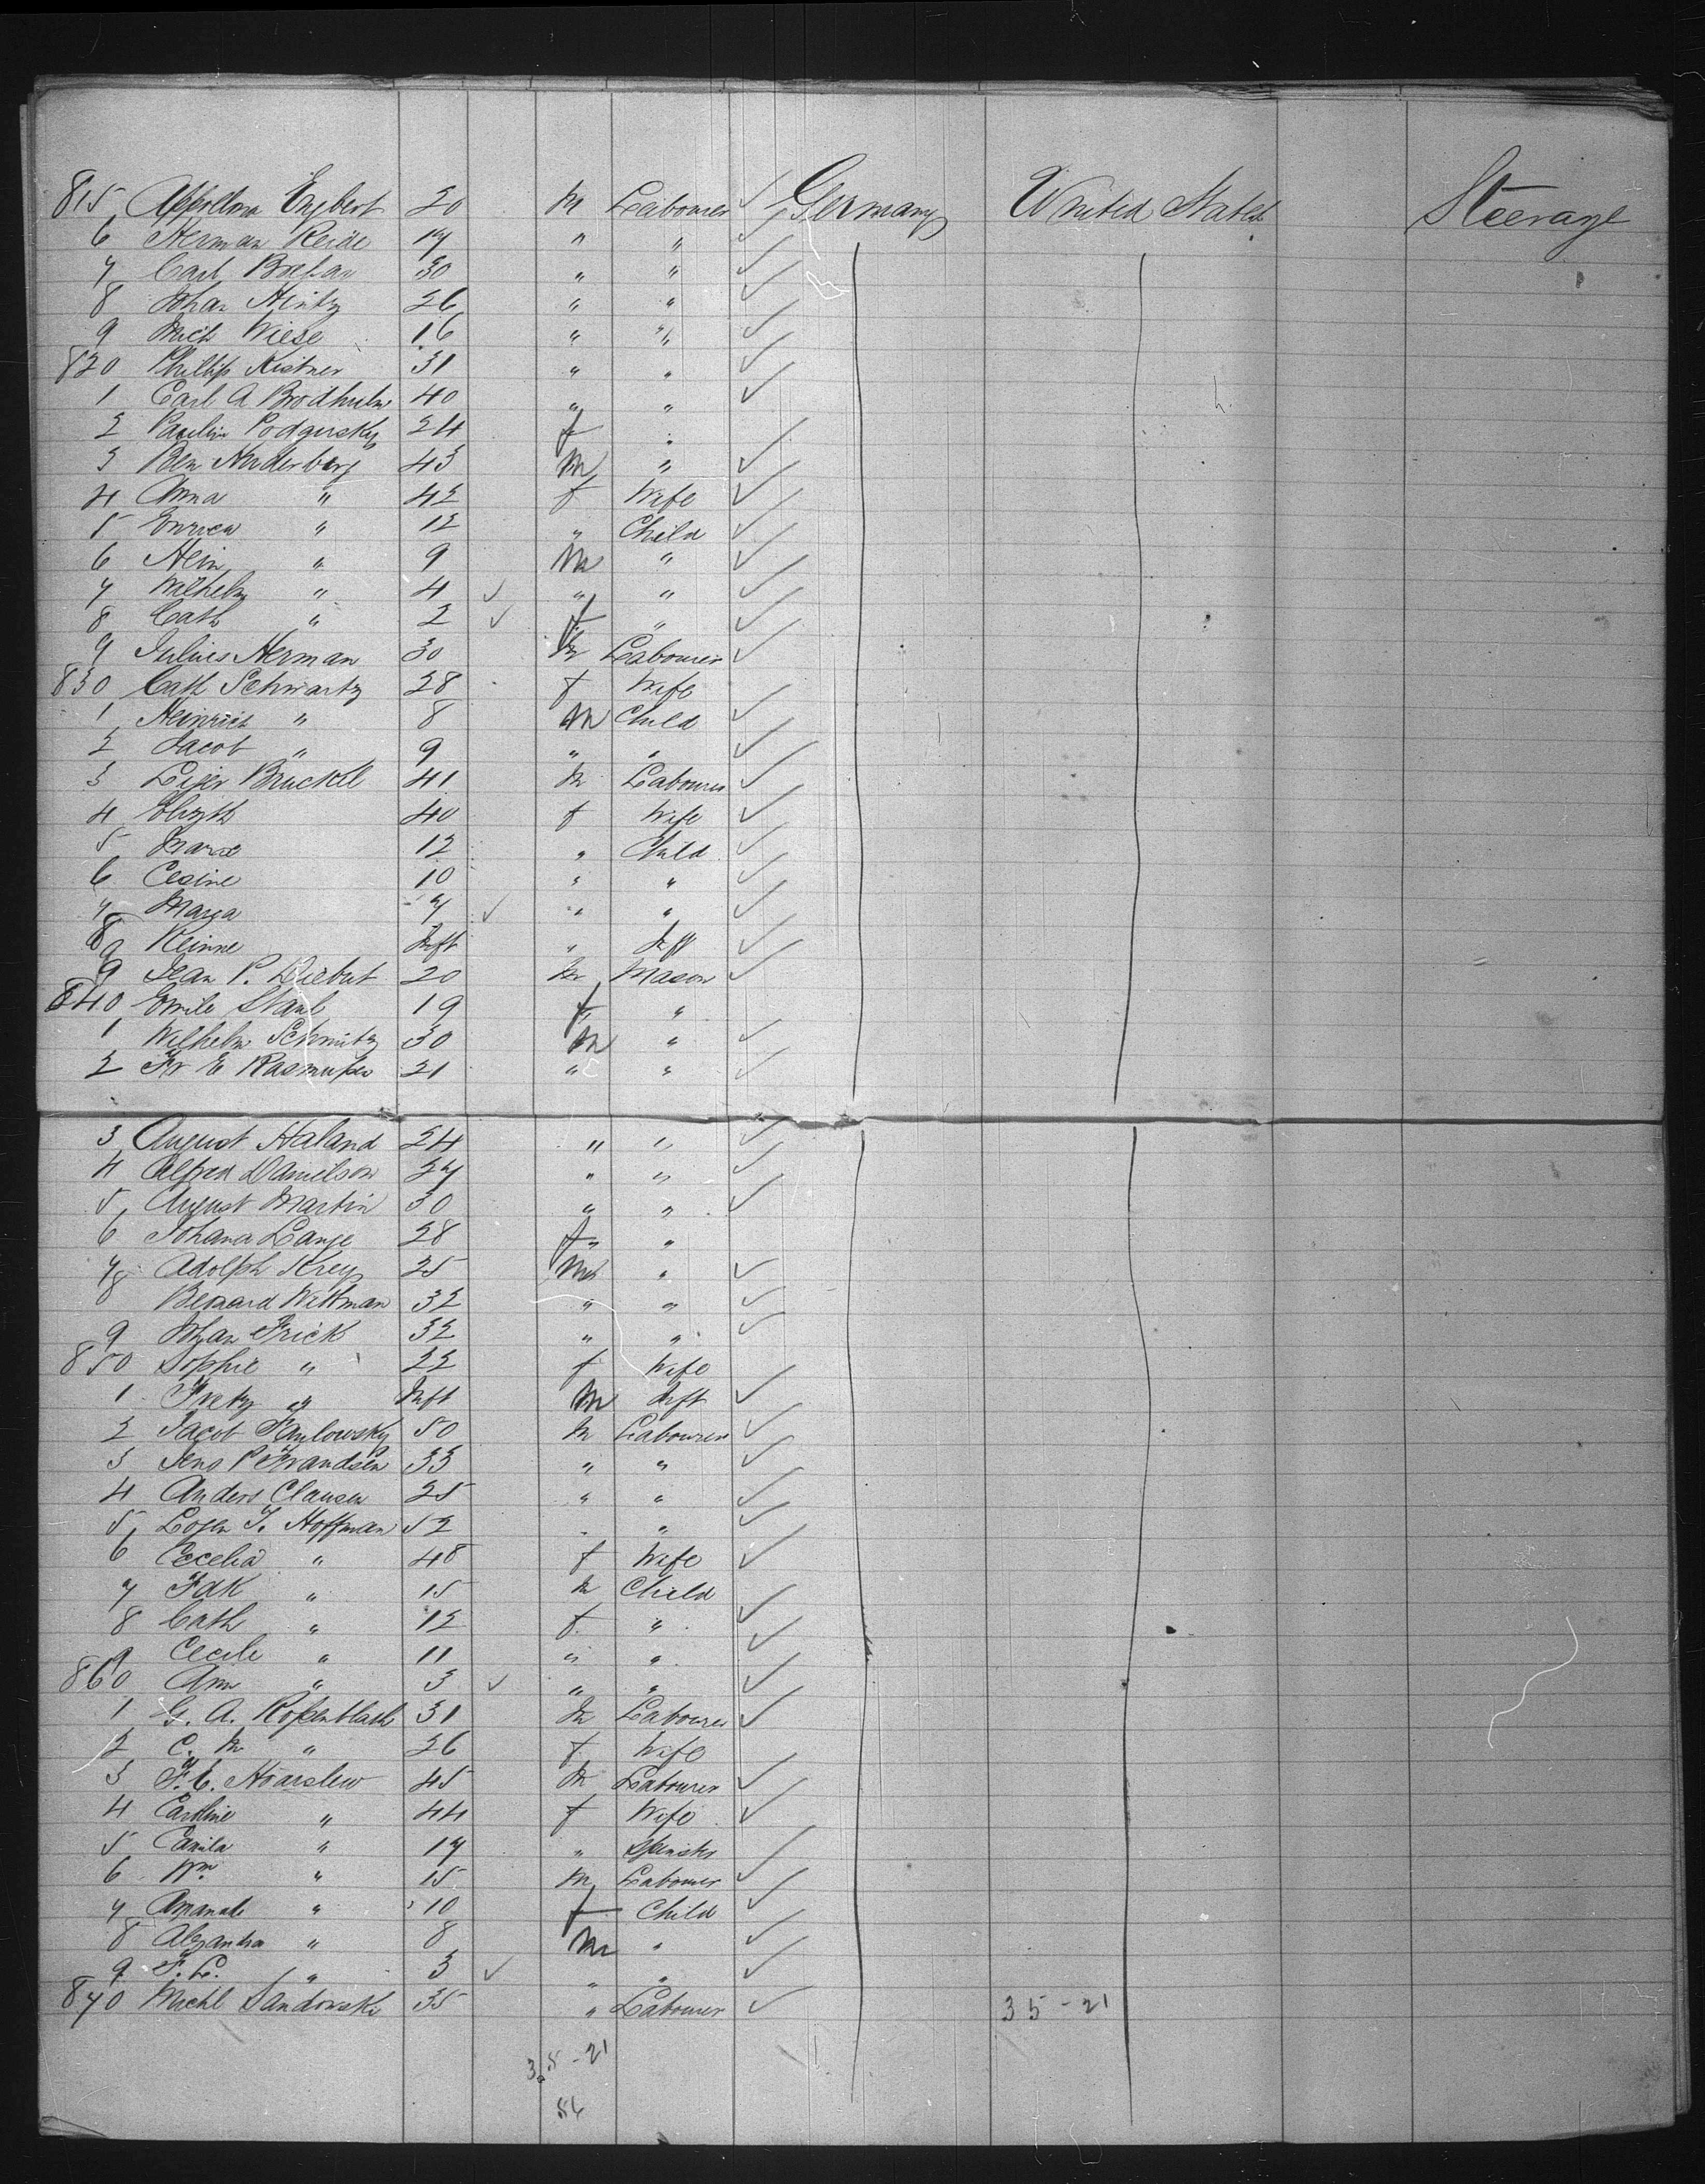 815 Appollona Engbert 20 M Labourer Germany United States Steerage
6 Herman Reide 19 " "
7 Carl 30 " "
8 Johan Hintz 26 " "
9 Mich Wiese 16 " "
820 Phillip Kistner 31 " "
1 Carl A Brodhulm 40 " "
2 Paulin Podgursky 24 f "
3 Ben Nuderberg 43 M "
4 Anna " 42 f Wife
5 " 12 " Child
6 Hein " 9 M "
7 Wilhelm " 4 " "
8 Cath " 2 f "
9 Julius Herman 30 M Labourer
830 Cath Schwartz 28 f Wife
1 Heinrich " 8 M Child
2 Jacob " 9 " "
3 Bruckel 41 M Labourer
4 Elizth 40 f Wife
5 Marie 12 " Child
6 Cesine 10 " "
7 Marga 7 " "
8 Reinne Inft " Inft
9 Jean P. 20 M Mason
840 Emile Staub 19 f "
1 Wilhelm Schmitz 30 M "
2 Fr E Rasmussen 21 " "
3 August Haland 24 " "
4 Alfred Danielson 27 " "
5 August Martin 30 " "
6 Johana Lange 28 f "
7 Adolph Krey 25 M "
8 Bernard Wittman 32 " "
9 Johan Frick 32 " "
850 Sophie " 22 f Wife
1 Fretz " Inft M Inft
2 Jacob Pawlowsky 50 M Labourer
3 Jens P Frandsen 33 " "
4 Anders Clausen 25 " "
5 J. Hoffman 52 "
6 Cecelia " 48 f Wife
7 " 15 M Child
8 Cath " 12 f "
9 Cecile " 11 " "
860 Ann " 3 " "
1 G. A. Rossenblath 31 M Labourer
2 C. M " 26 f Wife
3 F. C. Hoarslew 45 M Labourer
4 Caroline " 44 f Wife
5 Camila " 17 " Spinster
6 Wm " 15 M Labourer
7 Amanda " 10 f Child
8 Alexandra " 8 M "
9 F. L. " 3 " "
870 Michl Sandowski 35 " Labourer 35-21
35-21
56